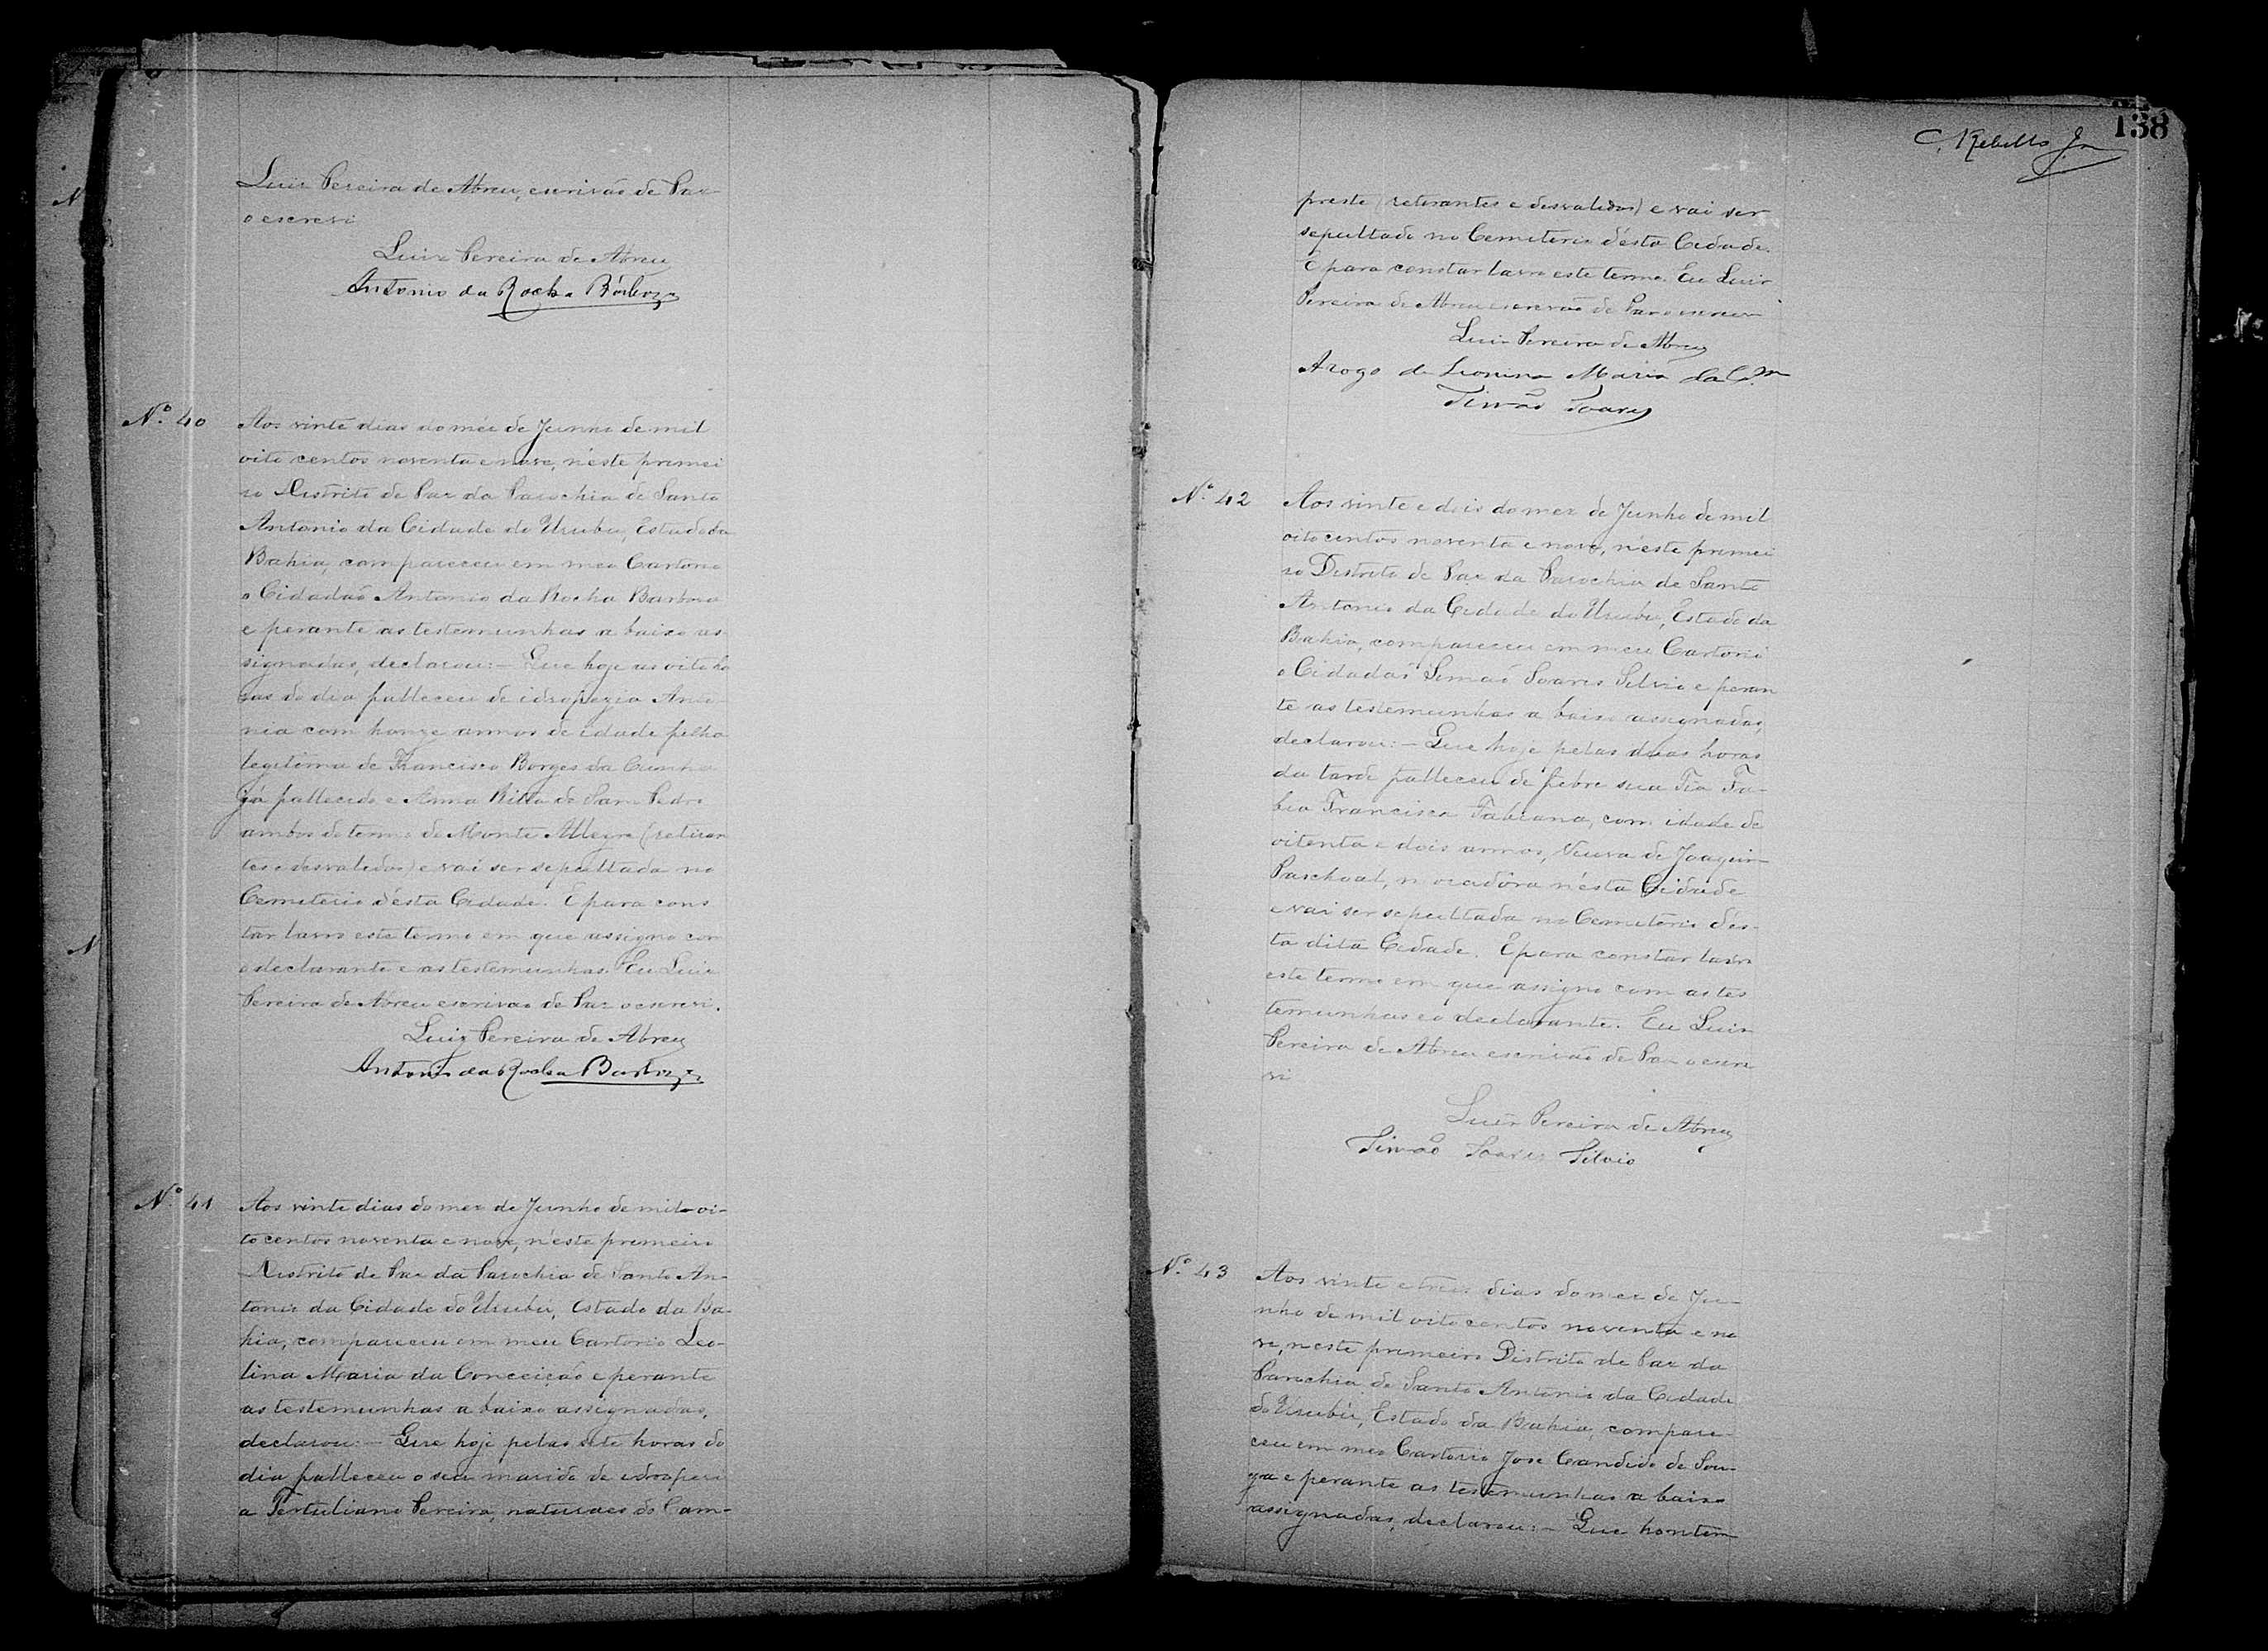 Luiz Pereira de Abreu, escrivão de Paz
o escrevi
Luiz Pereira de Abreu
Antonio da Rocha Barboza
Nº 40
Aos vinte dias do mez de Junho de mil
oito centos noventa e nove, n'éste primei
ro Districto de Paz da Parochia de Santo
Antonio da Cidade do Urubu, Estado da
Bahia, compareceu em meu Cartorio
o Cidadão Antonio da Rocha Barboza
e perante as testemunhas a baixo as-
signadas, declarou:- Que hoje as oito ho
ras do dia falleceu de idropezia Anto-
nia com honze annos de idade filha
legitima de Francisco Borges da Cunha
já fallecido e Anna Rita de San Pedro
ambos do termo de Monte Allegre (retiran
tes e desvalidos) e vai ser sepultada no
Cemeterio d'ésta Cidade. E para cons
tar lavro este termo em que assigno com
o declarante e as testemunhas. Eu Luiz
Pereira de Abreu escrivão de Paz o escrevi.
Luiz Pereira de Abreu
Antonio da Rocha Barboza
Nº 41
Aos vinte dias do mez de Junho de mil oi-
to centos noventa e nove, n'éste primeiro
Districto de Paz da Parochia de Santo An-
tonio da Cidade do Urubú, Estado da Ba-
hia, compareceu em meu Cartorio Leo-
lina Maria da Conceição e perante
as testemunhas a baixo assignadas,
declarou:- Que hoje pelas sete horas do
dia falleceu o seu marido de idropesi
a Tertuliano Pereira, naturaes do Cam-
138
C. Rebello Jr
preste (retirantes e desvalidos) e vai ser
sepultado no Cemeterio d'ésta Cidade.
E para constar lavro este termo. Eu Luiz
Pereira de Abreu escrivão de Paz o escrevi
Luiz Pereira de Abreu
Arogo de Leonina Maria da C.am
Simão Soares
Nº 42
Aos vinte e dois do mez de Junho de mil
oito centos noventa e nove, n'éste primei
ro Distrito de Paz da Parochia de Santo
Antonio da Cidade do Urubu, Estado da
Bahia, compareceu em meu Cartorio
o Cidadão Simão Soares Silvio e peran
te as testemunhas a baixo assignadas,
declarou:- Que hoje pelas duas horas
da tarde falleceu de febre sua Tia
Francisca Fabiana, com idade de
oitenta e dois annos, Viuva de Joaquim
Paschoal, moradôra n'ésta Cidade
e vai ser sepultada no Cemeterio d'és-
ta dita Cidade. E para constar lavro
este termo em que assigno com as tes
temunhas e o declarante. Eu Luiz
Pereira de Abreu escrivão de Paz o escre
vi
Luiz Pereira de Abreu
Simão Soares Silvio
Nº 43
Aos vinte e treis dias do mez de Ju-
nho de mil oito centos noventa e no
ve, neste primeiro Distrito de Paz da
Parochia de Santo Antonio da Cidade
do Urubú, Estado da Bahia, compare-
ceu em meo Cartorio Jose Candido de Sou-
za e perante as testemunhas a baixo
assignadas, declarou:- Que hontem